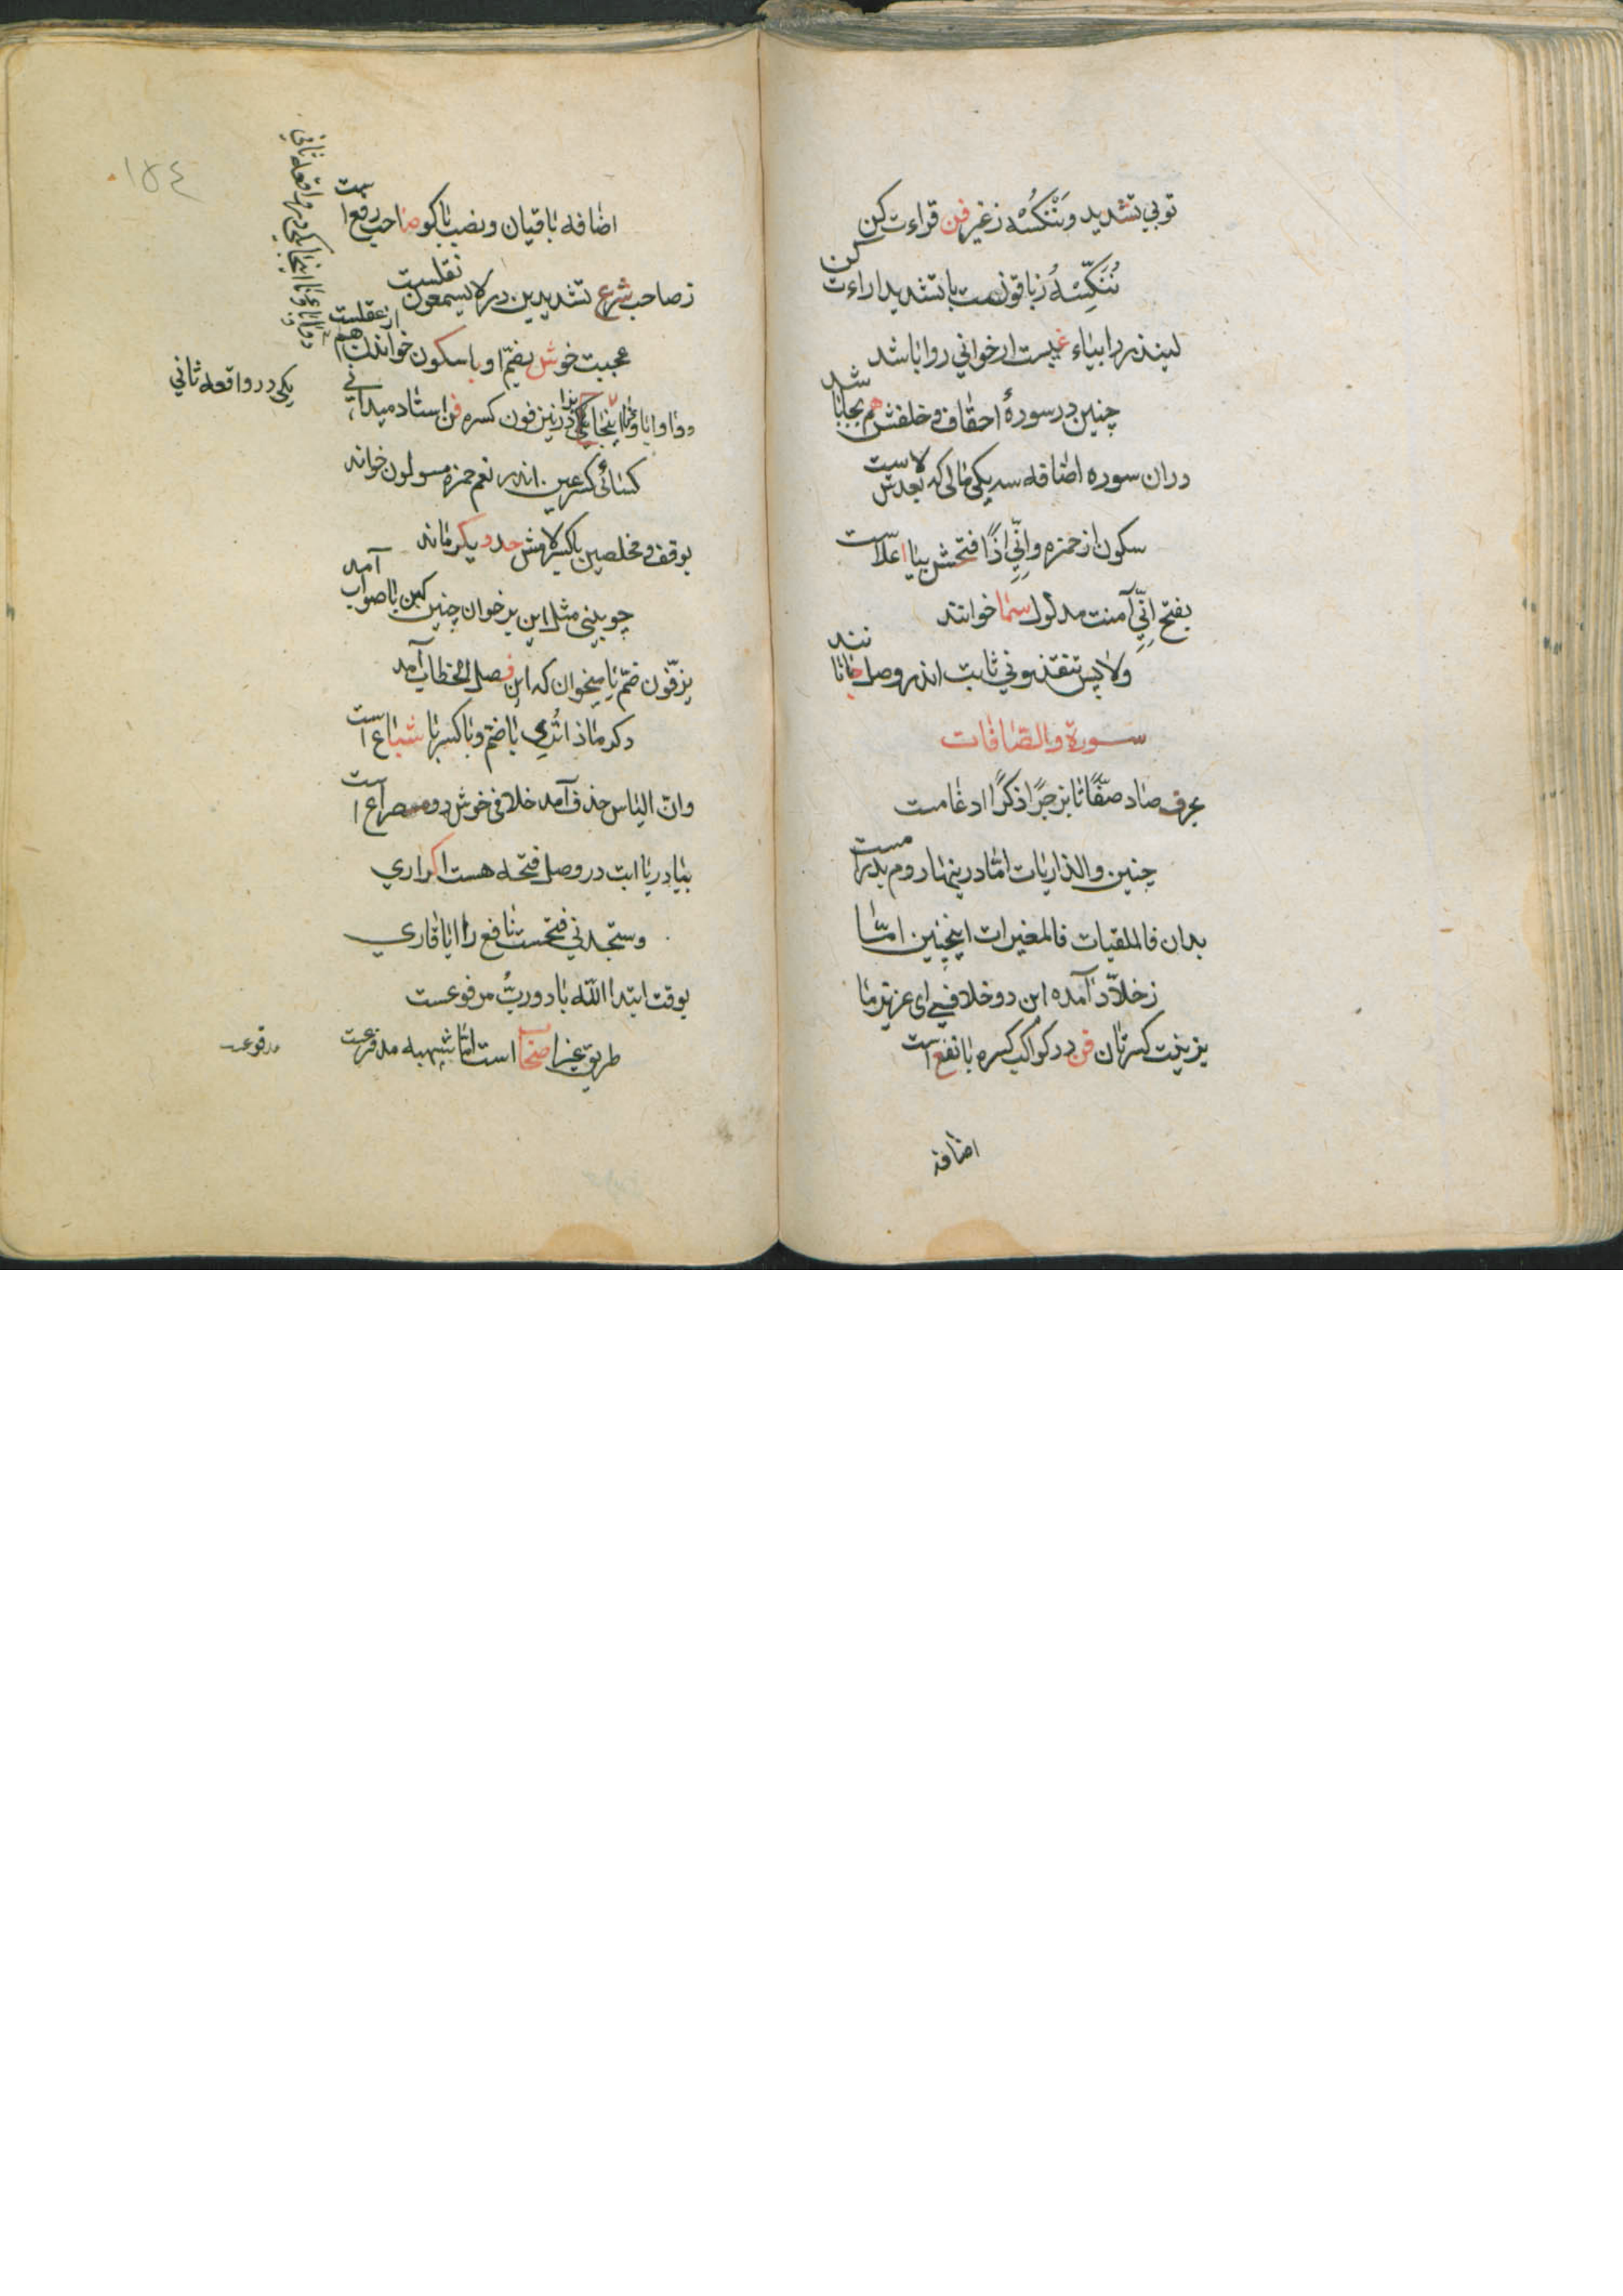 توبی تشدید و نَنْكُسْهُ ز غیر فن قراءت کن
نُنَكِّسْهُ ز باقونست با تشدید اراءت کن
لینذر را بیاء غیبست ار خوانی روا باشد
چنین در سورهٔ احقاف و خلفش هم بجا باشد
دران سوره اضافه سه یکی مالی که بعدش لاست
سکون از حمزه و اِنّی اِذًا فتحش بیا اعلاست
بفتح اِنّی آمنت مدلول سما خوانند
ولا پس تنقذونی ثابت اندر وصل جانانند
سورة والصافات
بحرف صاد صفًّا تا بزجرًا ذکرًا ادغامست
چنین والذاریات اما درینها روم بد رامست
بدان فالملقیات فالمغیرات اینچنین اما
ز خلّاد آمده این دو خلافی ای عزیز ما
بزینت کسرتان فن در کواکب کسره با نفع است
اضافه
اضافه باقیان و نصب با کو صاحب رفع است
ز صاحب شرع تشدیدین در لا یسمعون نقلست
عجبت خوش بضم او با سکون خواندن هم از عقلست
دو او اباؤنا اینجا یکی در نیز فون کسره فن استاد میدانی
یکی در واقعه ثانی
کسائی کسر عین اندر نعم حمزه مسولون خواند
بوقف و مخلصین با کسر لامش حد دیگر ماند
چو بینی مثل این بر خوان چنین کین با صواب آمد
یزفّون ضمّ یا میخوان که این فصل الخطاب آمد
دگر ماذا تُری با ضم و با کسر با شباع است
وانّ الیاس حذف آمد خلافی خوش دو مصراع است
بیا در یا ابت در وصل فتحه هست اکر اری
و ستجدنی فتحست نافع را ایا قاری
بوقت ابتدا اللّه با دو ربُّ مرفوعست
طریق غیر اصحاب است اما شبهه مدفوعست
مدفوعست